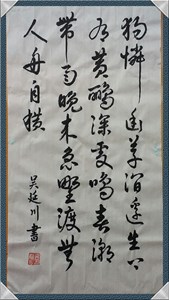 獨憐幽草澗邊生上
有黃鸝深處鳴春潮
帶雨晚來急野渡無
人舟自橫
吳延川書